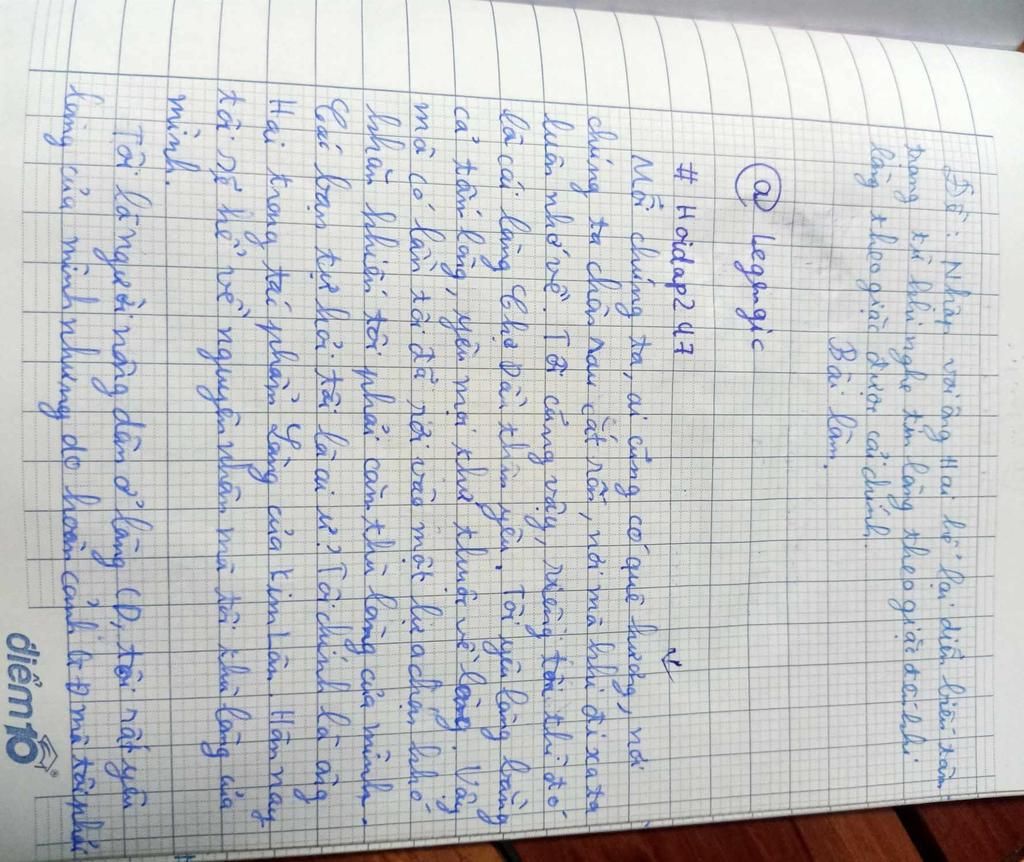 Đề: Nhập vai ông Hai kể lại diễn biến tâm
trạng từ khi nghe tin làng theo giặc đến khi
làng theo giặc được cải chính
Bài làm.
@ legengic
# Hoidap247
Mỗi chúng ta, ai cũng có quê hương, nơi
chúng ta chôn rau cắt rốn, nơi mà khi đi xa ta
luôn nhớ về. Tôi cũng vậy, riêng tôi thì đó
là cái làng Chợ Dầu thân yêu. Tôi yêu làng bằng
cả tấm lòng, yêu mọi thứ thuộc về làng. Vậy
mà có lần tôi đã rơi vào một lựa chọn khó
khăn khiến tôi phải căm thù làng của mình.
Các bạn tự hỏi tôi là ai ư? Tôi chính là ông
Hai trong tác phẩm Làng của Kim Lân. Hôm nay
tôi sẽ kể về nguyên nhân mà tôi thù làng của
mình.
Tôi là người nông dân ở làng CD, tôi rất yêu
làng của mình nhưng do hoàn cảnh mà tôi phải
điểm10